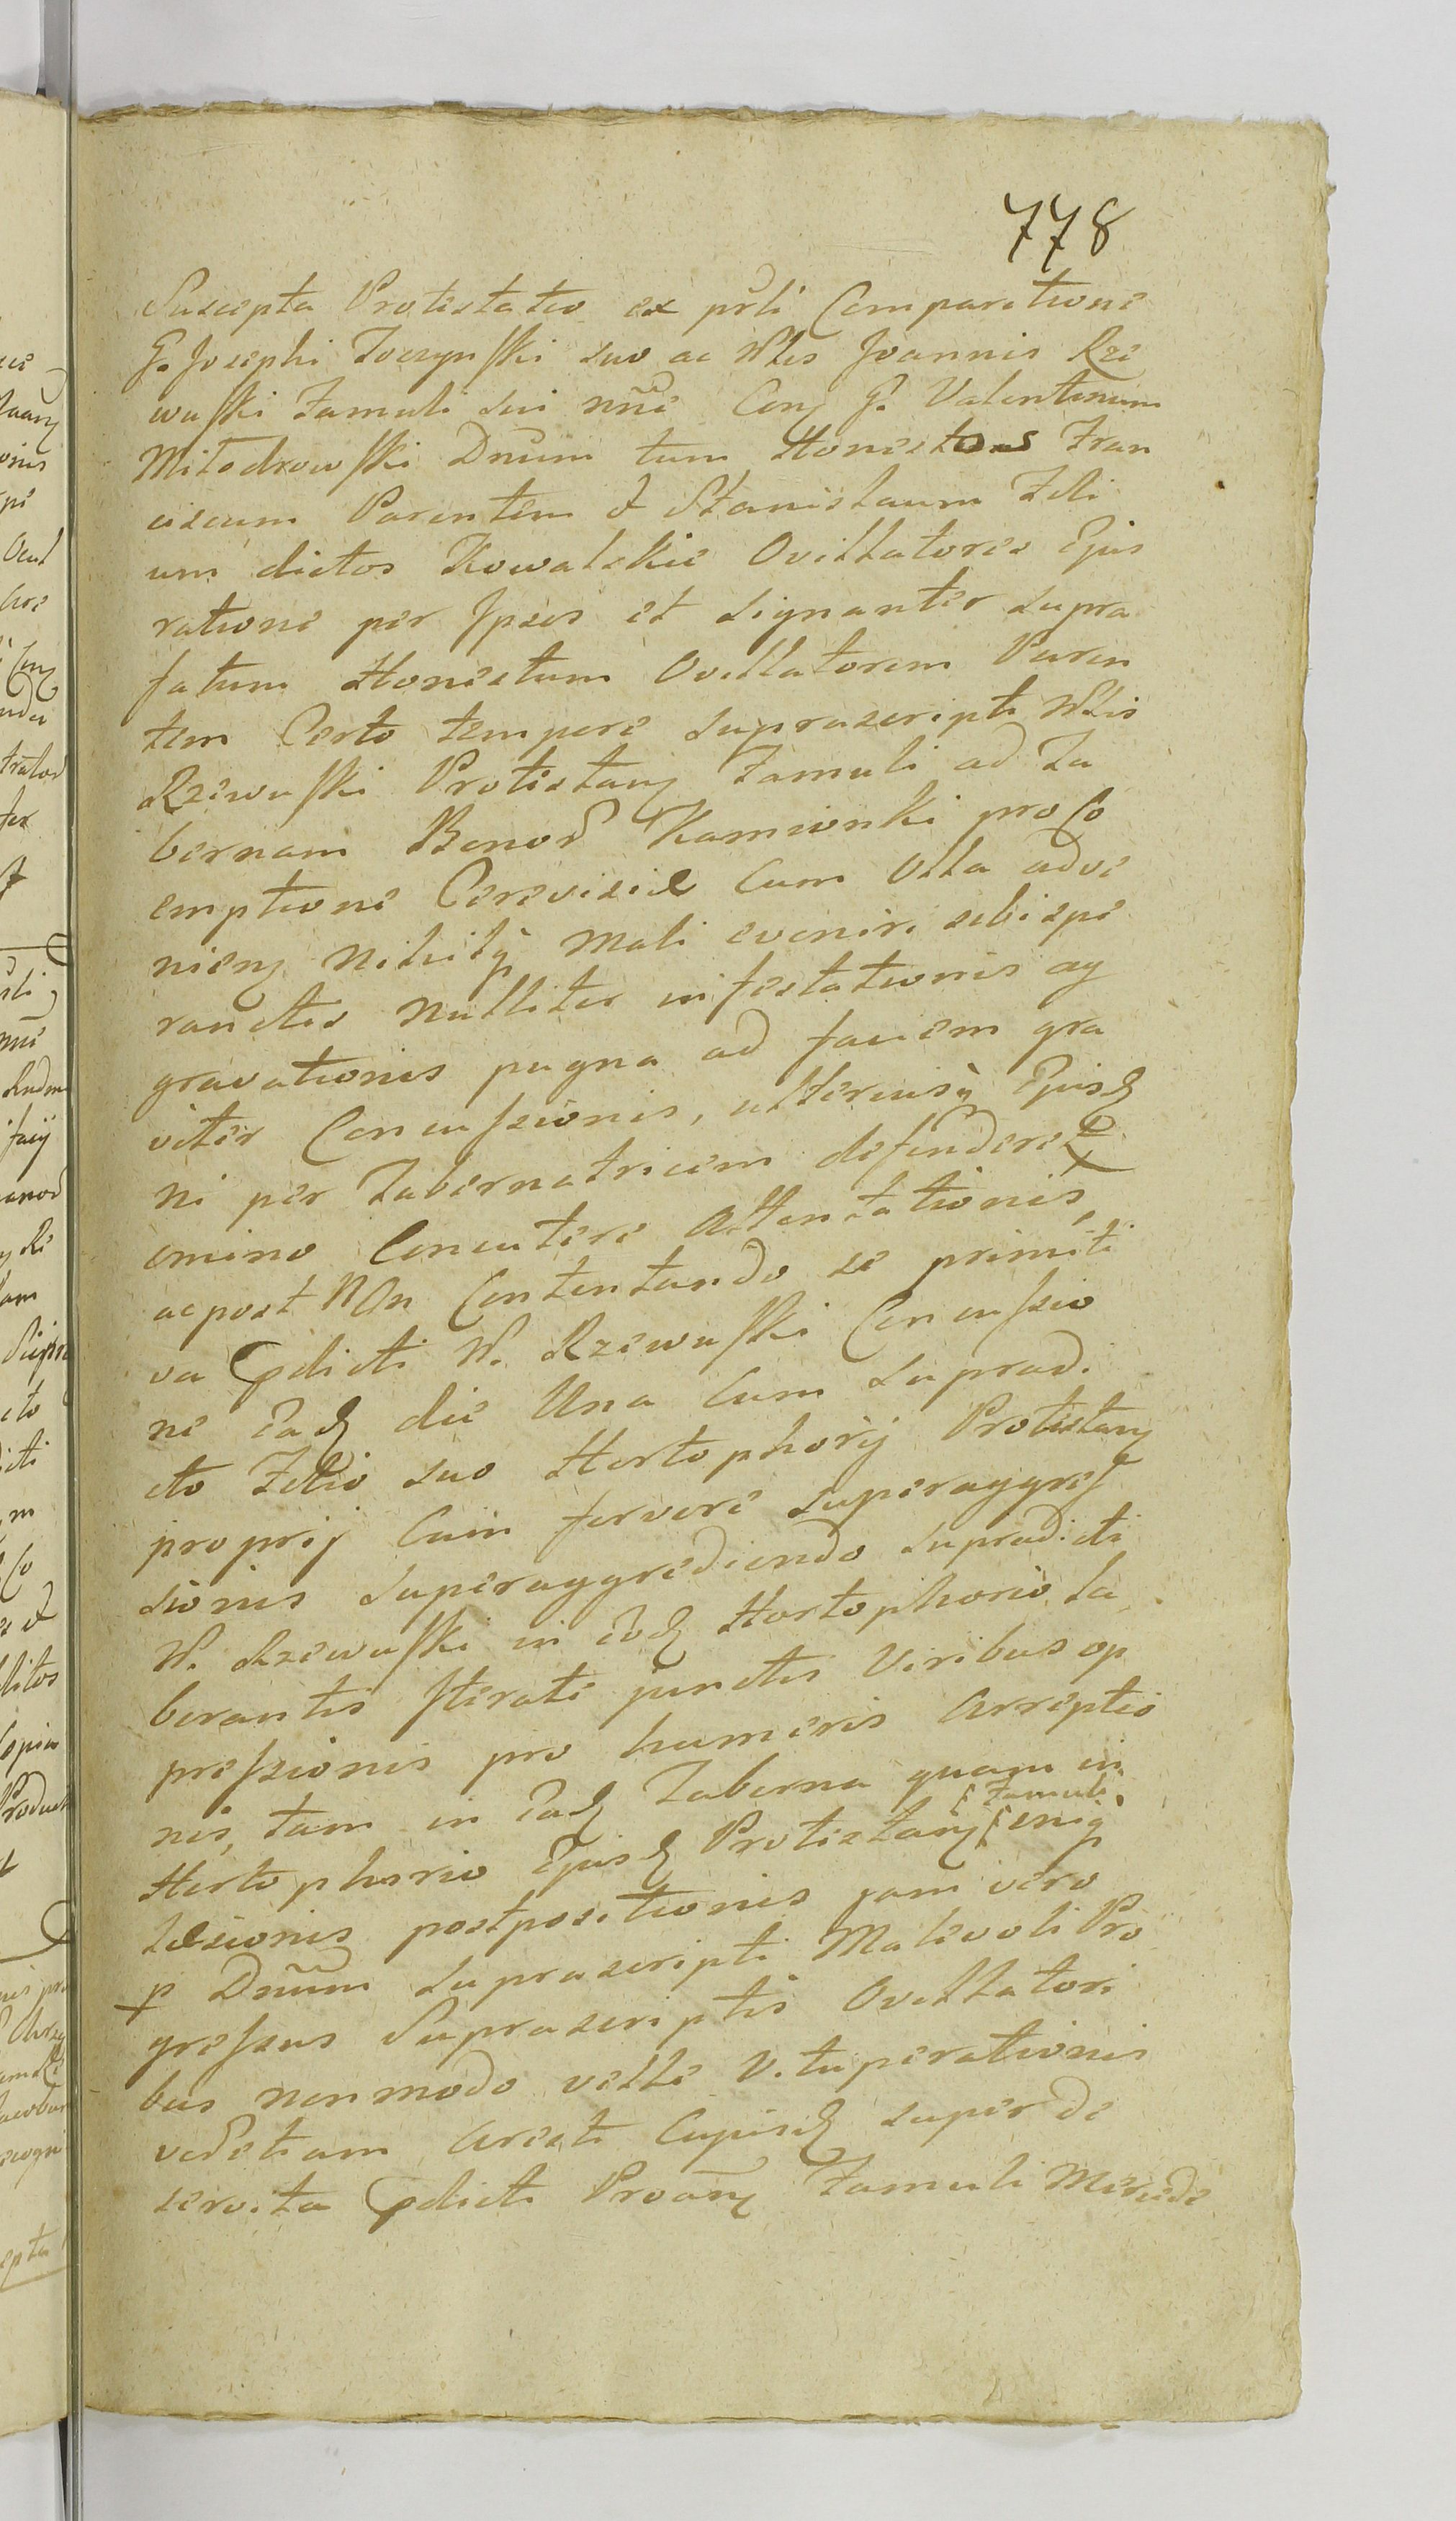 778
Suscepta Protestatio ex prsti Comparitione
G. Josephi Toczynſki suo ac Nblis Joannis Rze
wuſki Famuli sui nñe Con͠ G. Valentinum
Mitodrowſki Dnum tum Honestos Fran
ciscum Parentem & Stanislaum Fili
um dictos Kowalskie Ovillatores Ejus
ratione per Ipsos et signanter supra
fatum Honestum Ovillatorem Paren
tem Certo tempore suprascripti Nblis
Rzewuſki Protestan͠ Famuli ad Ta
bernam Bonor Kamionki pro Co
emptione Cerevisiæ Cum Olla adve
nien͠ Nihilq̃ Mali eveniri sibi spe
rantis Nulliter infestationis ag
gravationis pugna ad faciem gra
viter Concuſsionis, ulteriusq̃ Ejusd
ni per Tabernatricem defenderet͠
omino Concutere Attentationis,
ac post Non Contentando se primiti
va p̃dicti N. Rzewuſki Concuſsio
ne Ead die Una Cum supradi
cto Filio suo Hortophorij Protestan͠
proprij Cum fervore superaggreſ
sionis superaggrediendo supradicti
N. Rzewuſki in eod Hortophorio la
borantis Iterate junctis Viribus op
preſsionis pro humeris Arreptio
nis, tam in Ead Taberna quam in
Hortophorio Ejusd Protestan͠ Famuli eniq̃
læsionis postpositionis jam vero
p Dnum suprascripti Malevoli Pro
greſsus Suprascriptis Ovillatori
bus nonmodo velle Vituperationis
vedetiam Aresti Cujusd super de
servita p̃dicti Proan͠ Famuli Mercede